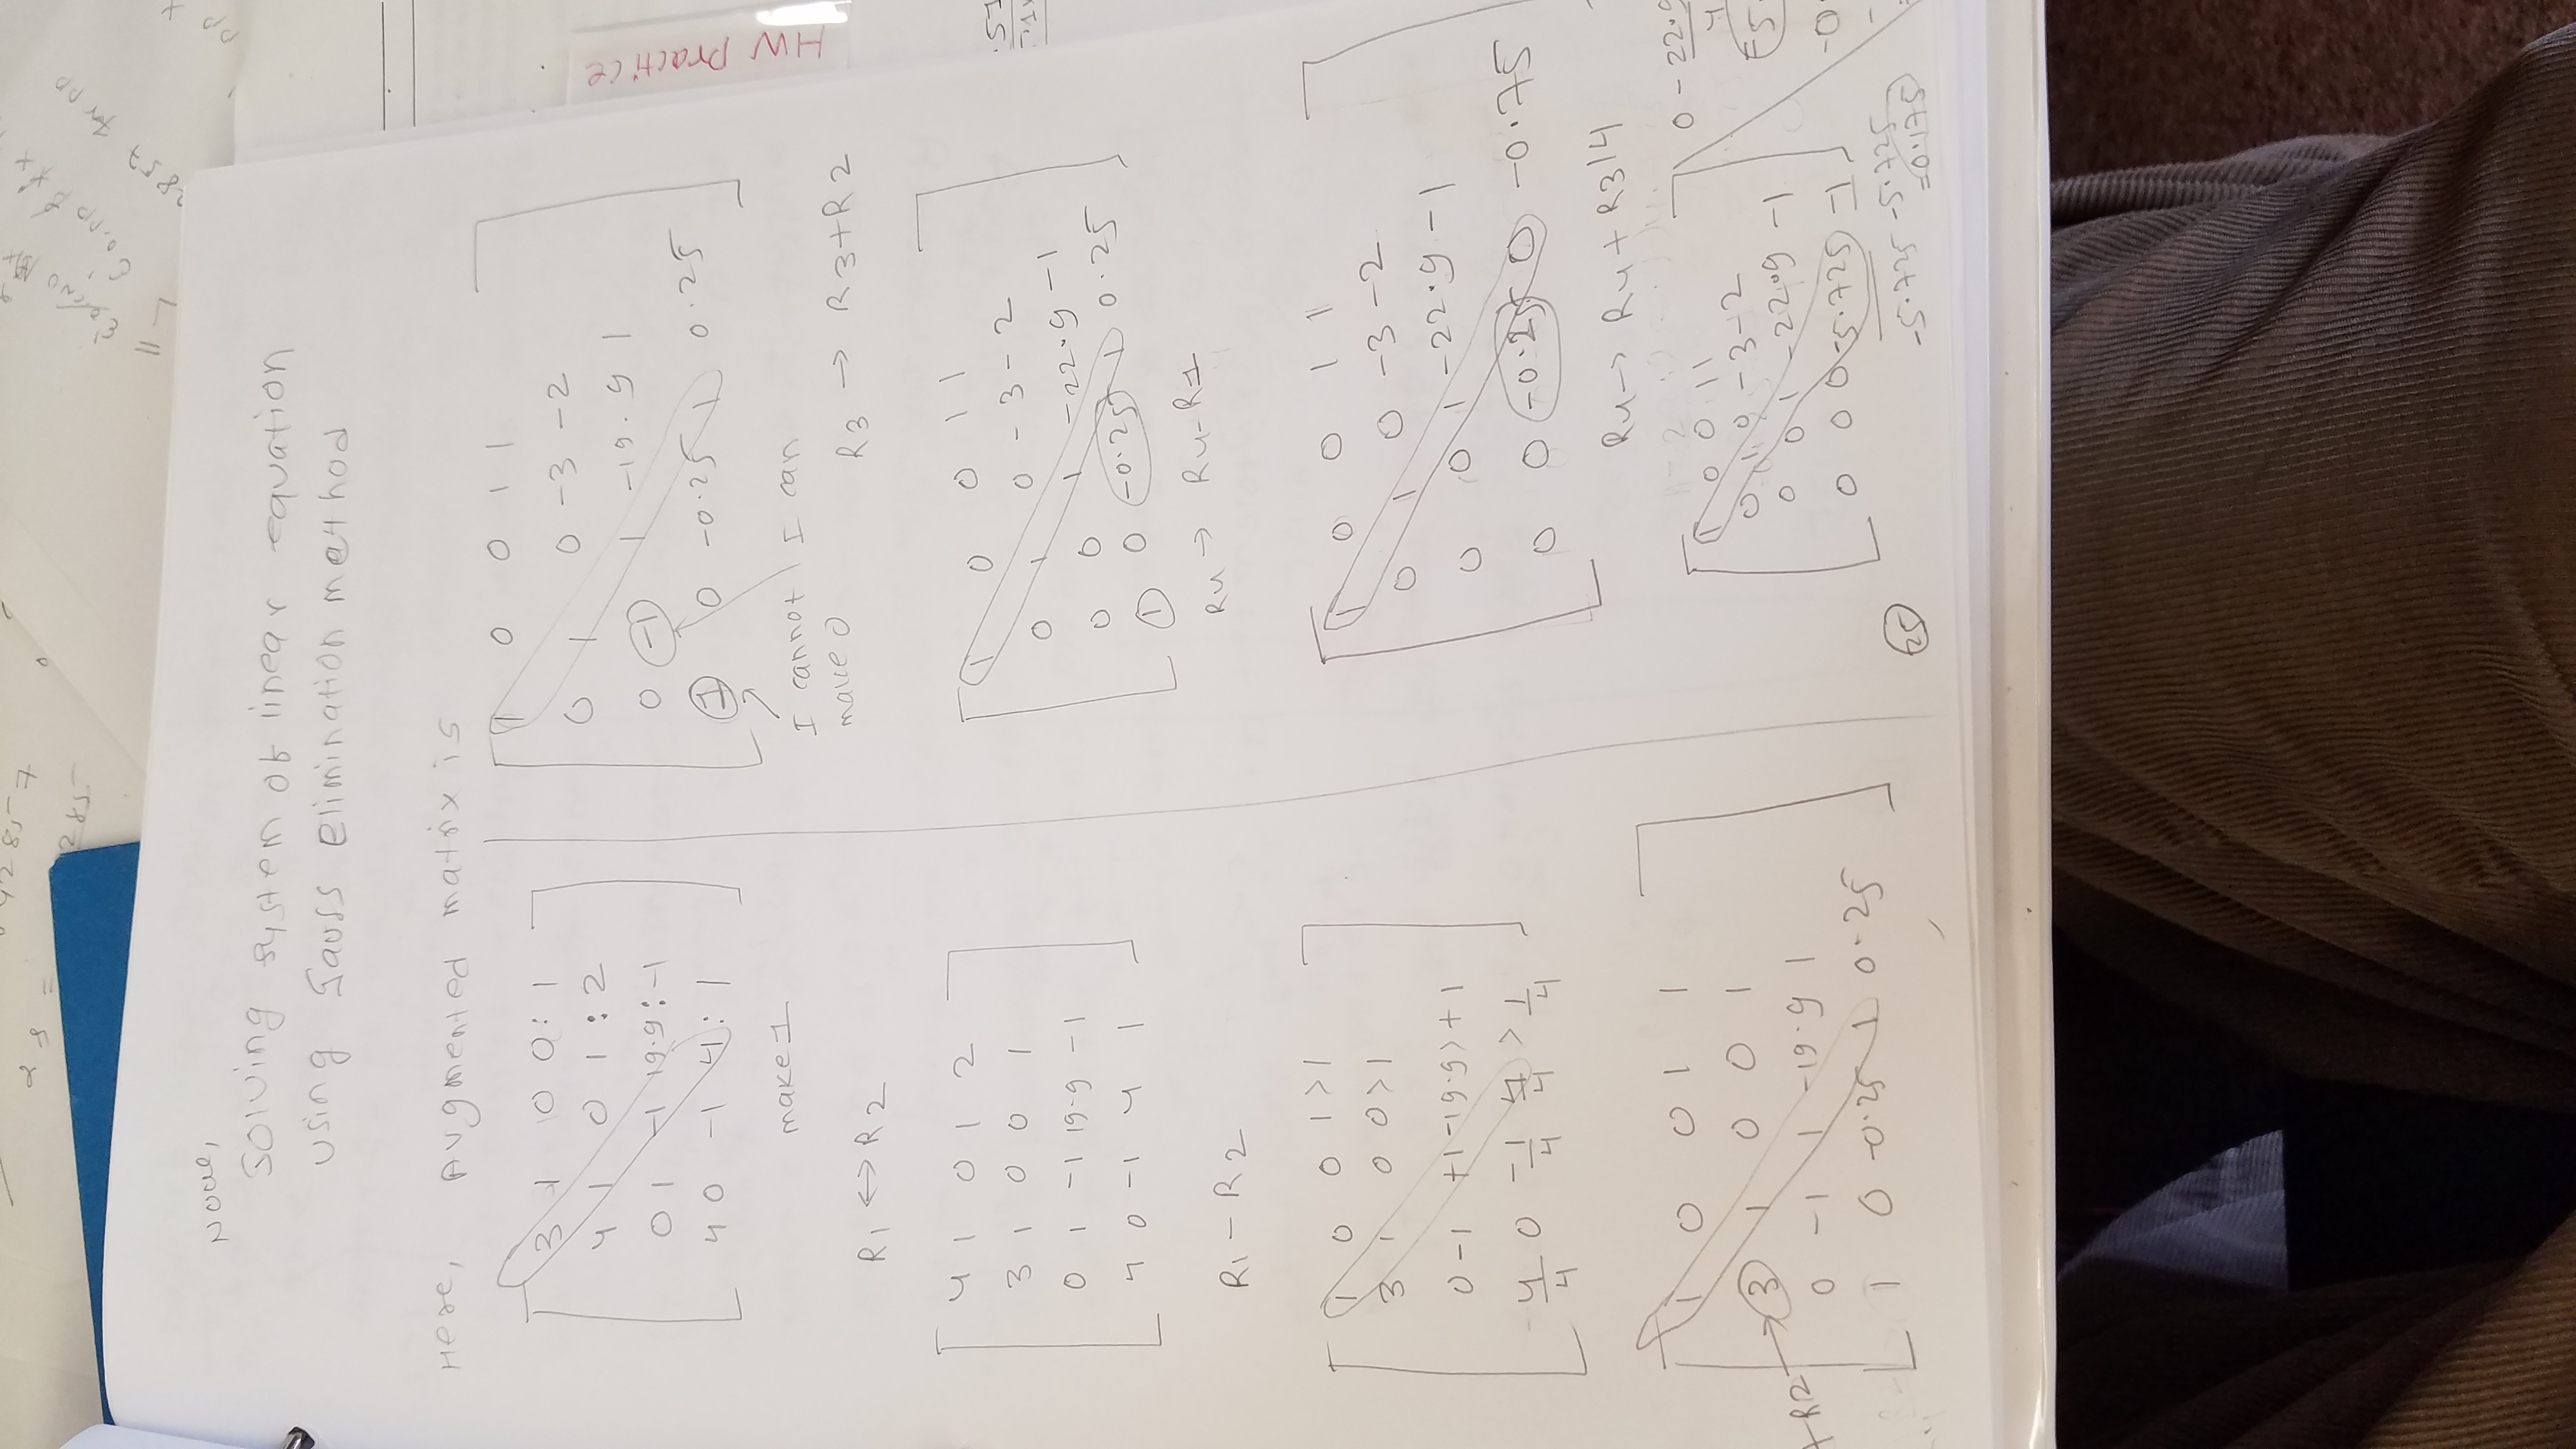 42857
285
Solving system of linear equation
using Gauss Elimination method
Here, Augmented matrix is
3 1 0 0 : 1
4 1 0 1 : 2
0 1 -1 19.9 : -1
4 0 -1 4 : 1
make 1
R1 <-> R2
4 1 0 1 2
3 1 0 0 1
0 1 -1 19.9 -1
4 0 -1 4 1
R1 - R2
1 0 0 1 > 1
3 1 0 0 > 1
0 -1 +1 -19.9 > +1
4/4 0 -1/4 4/4 > 1/4
1 0 0 1 1
3 1 0 0 1
0 -1 1 -19.9 1
1 0 -0.25 1 0.25
+R2
1 0 0 1 1
0 1 0 -3 -2
0 -1 1 -19.9 1
1 0 -0.25 1 0.25
I cannot
make 0
I can
R3 -> R3+R2
1 0 0 1 1
0 1 0 -3 -2
0 0 1 -22.9 -1
1 0 -0.25 1 0.25
R4 -> R4-R1
1 0 0 1 1
0 1 0 -3 -2
0 0 1 -22.9 -1
0 0 -0.25 0 -0.75
R4 -> R4 + R3/4
1 0 0 1 1
0 1 0 -3 -2
0 0 1 -22.9 -1
0 0 0 -5.725 -1
-5.725 -5.725
=0.175
25
0 - 22.9
4
-5.
HW practice